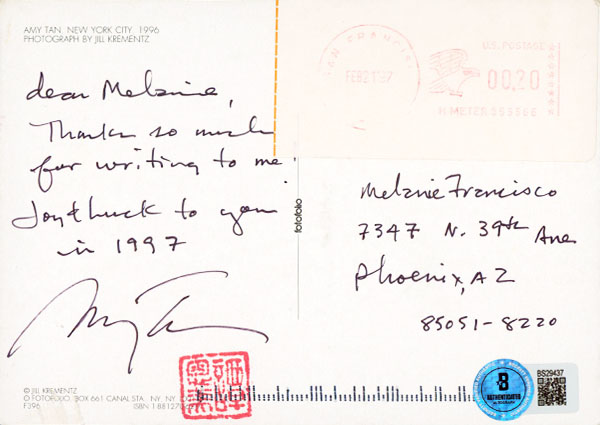 AMY TAN, NEW YORK CITY, 1996
PHOTOGRAPH BY JILL KREMENTZ
dear Melanie,
Thanks so much
for writing to me!
Joy & luck to you
in 1997
Amy Tan
© JILL KREMENTZ
© FOTOFOLIO, BOX 661 CANAL STA. NY, NY
F396
ISBN 1 881270
fotofolio
SAN FRANCI
FEB 21 '97
U.S. POSTAGE
00.20
H METER
Melanie Francisco
7347 N. 39th Ave
Phoenix, AZ
85051-8220
B
AUTHENTICATED
BS29437